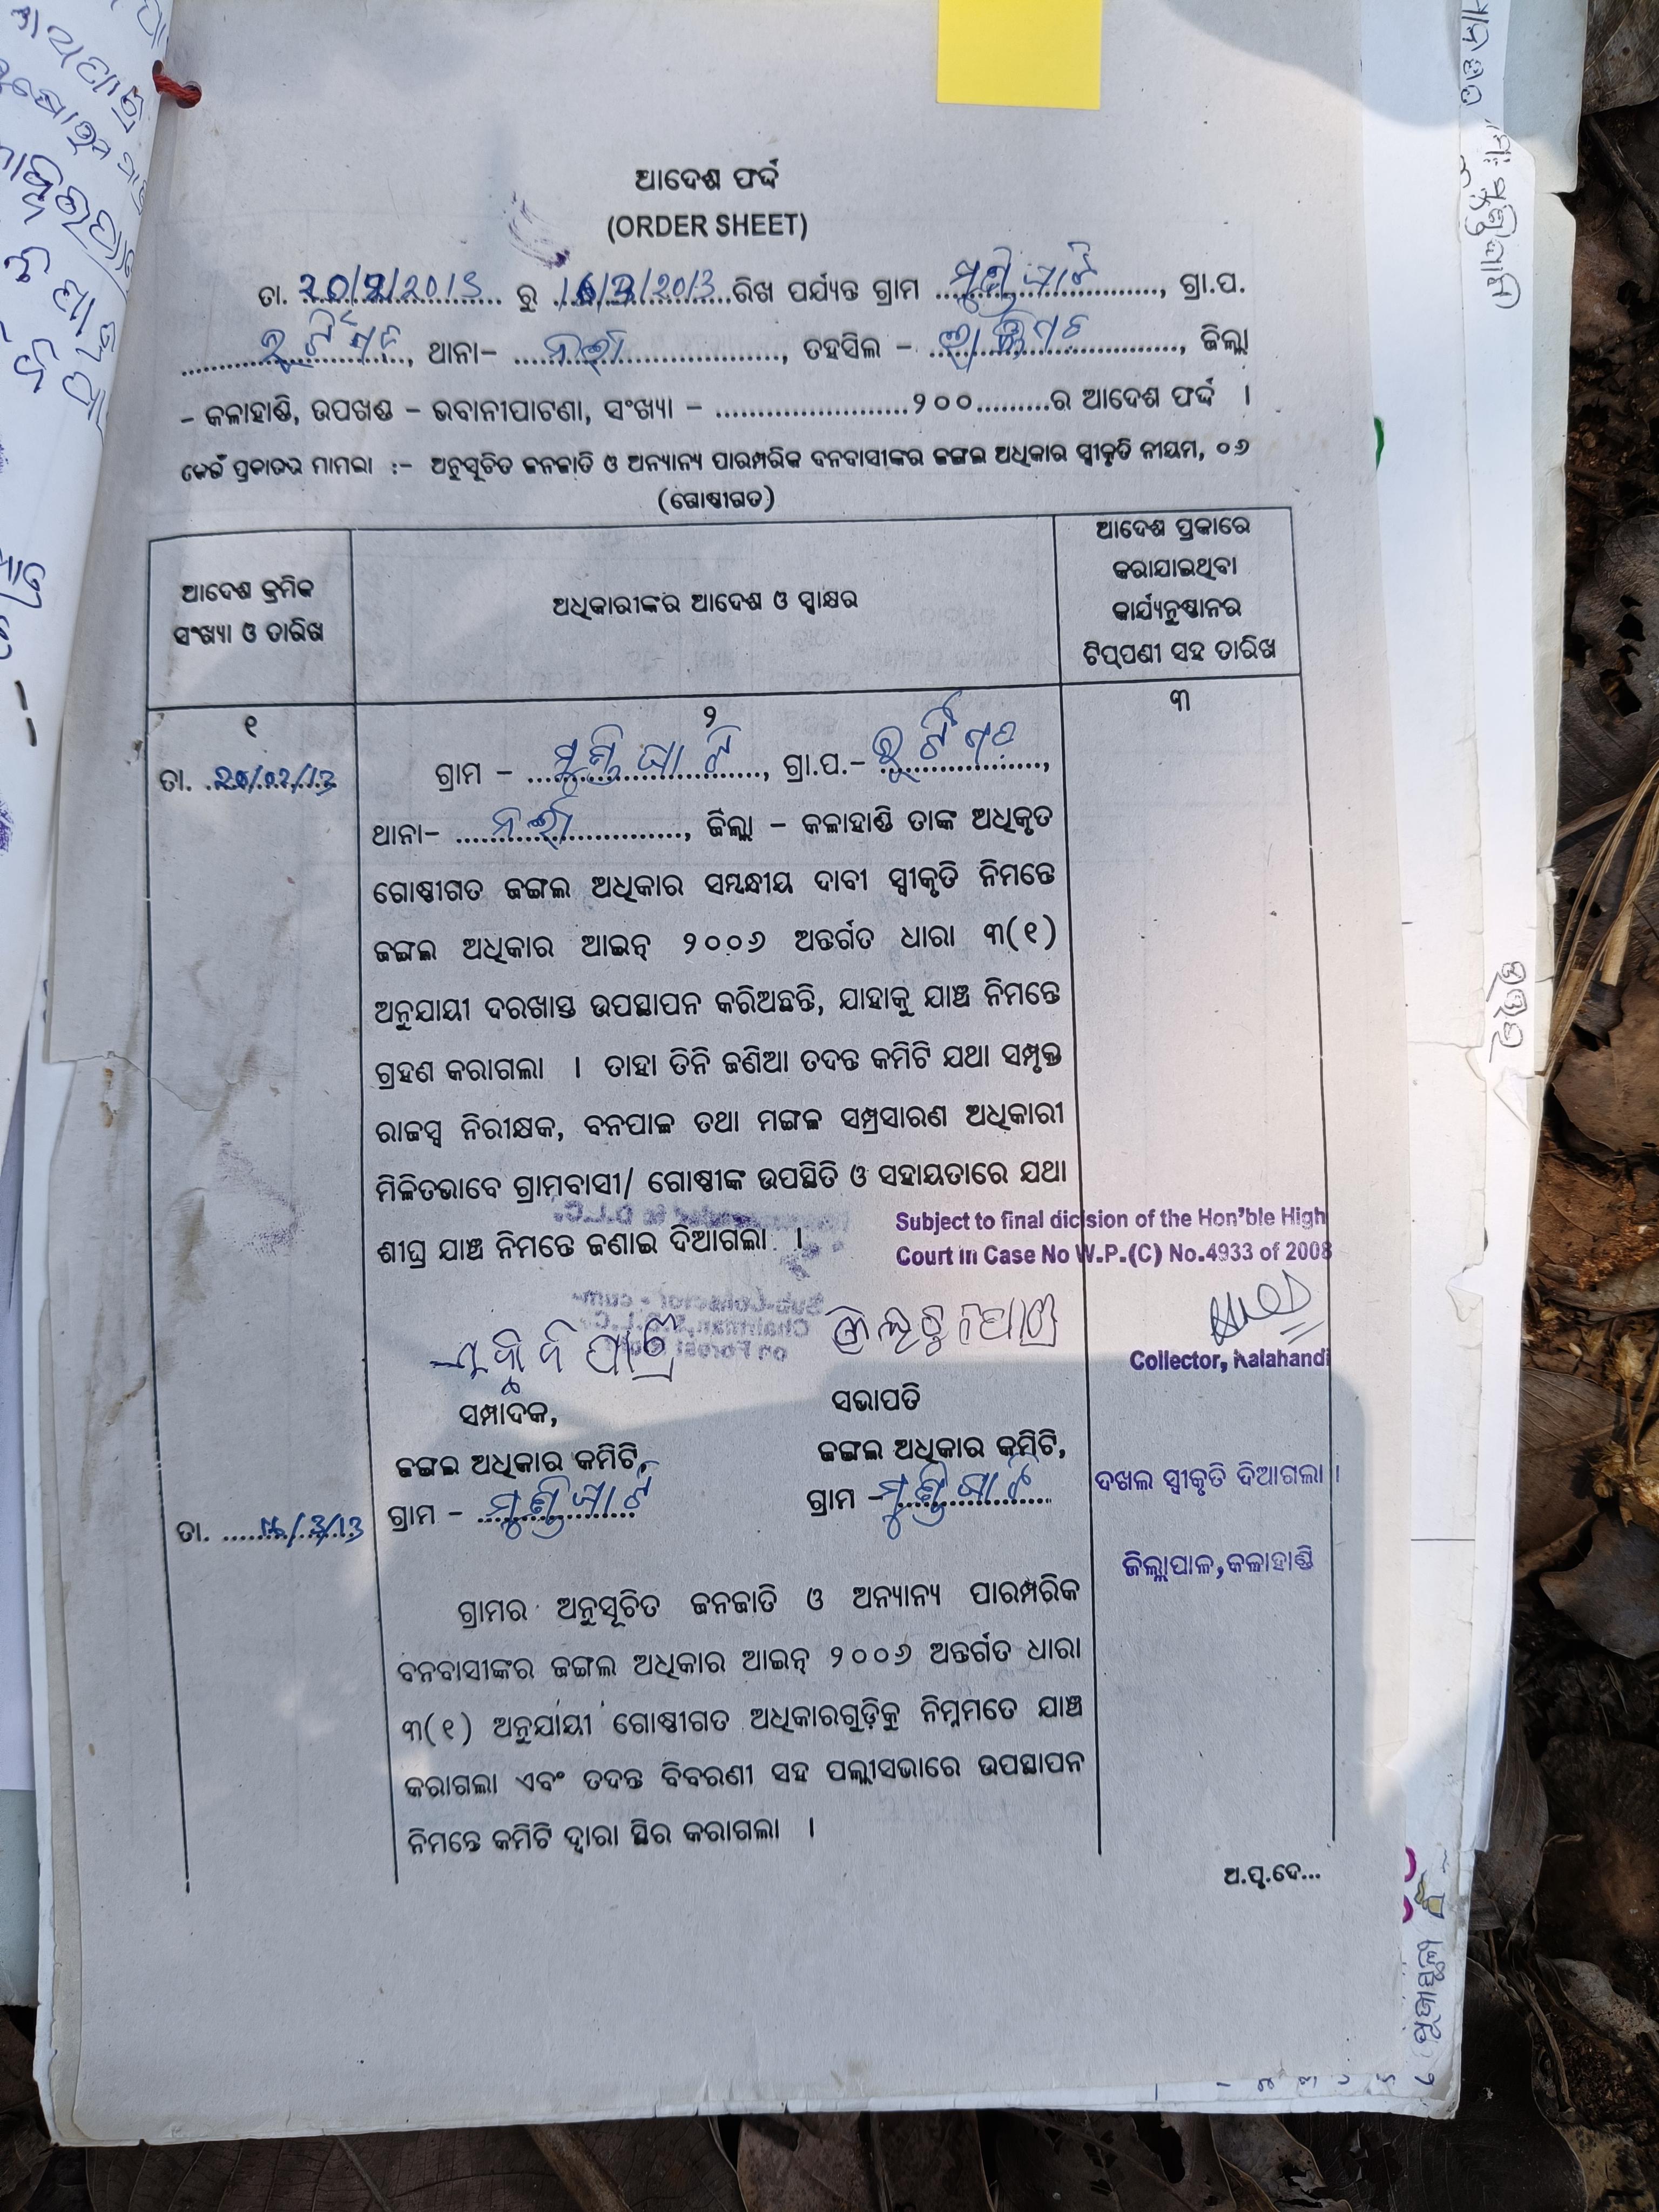 ଆଦେଶ ଫର୍ଦ୍ଦ
(ORDER SHEET)
ତା. 20/2/2013 ରୁ 16/3/2013 ରିଖ ପର୍ଯ୍ୟନ୍ତ ଗ୍ରାମ ................, ଗ୍ରା.ପ.
................, ଥାନା– ନର୍ଲା ................, ତହସିଲ – ................, ଜିଲ୍ଲା
– କଳାହାଣ୍ଡି, ଉପଖଣ୍ଡ – ଭବାନୀପାଟଣା, ସଂଖ୍ୟା – ........................୨୦୦.........ର ଆଦେଶ ଫର୍ଦ୍ଦ ।
କେଉଁ ପ୍ରକାରର ମାମଲା :– ଅନୁସୂଚିତ ଜନଜାତି ଓ ଅନ୍ୟାନ୍ୟ ପାରମ୍ପରିକ ବନବାସୀଙ୍କର ଜଙ୍ଗଲ ଅଧିକାର ସ୍ୱୀକୃତି ନୀୟମ, ୦୬
(ଗୋଷ୍ଠୀଗତ)
ଆଦେଶ କ୍ରମିକ
ସଂଖ୍ୟା ଓ ତାରିଖ
ଅଧିକାରୀଙ୍କର ଆଦେଶ ଓ ସ୍ୱାକ୍ଷର
ଆଦେଶ ପ୍ରକାରେ
କରାଯାଇଥିବା
କାର୍ଯ୍ୟାନୁଷ୍ଠାନର
ଟିପ୍ପଣୀ ସହ ତାରିଖ
୧
୨
୩
ତା. 20/02/13
ଗ୍ରାମ – ମୁଣ୍ଡିଘାଟି, ଗ୍ରା.ପ.– ................,
ଥାନା– ନର୍ଲା ................, ଜିଲ୍ଲା – କଳାହାଣ୍ଡି ତାଙ୍କ ଅଧିକୃତ
ଗୋଷ୍ଠୀଗତ ଜଙ୍ଗଲ ଅଧିକାର ସମ୍ବନ୍ଧୀୟ ଦାବୀ ସ୍ୱୀକୃତି ନିମନ୍ତେ
ଜଙ୍ଗଲ ଅଧିକାର ଆଇନ୍ ୨୦୦୬ ଅନ୍ତର୍ଗତ ଧାରା ୩(୧)
ଅନୁଯାୟୀ ଦରଖାସ୍ତ ଉପସ୍ଥାପନ କରିଅଛନ୍ତି, ଯାହାକୁ ଯାଞ୍ଚ ନିମନ୍ତେ
ଗ୍ରହଣ କରାଗଲା । ତାହା ତିନି ଜଣିଆ ତଦନ୍ତ କମିଟି ଯଥା ସମ୍ପୃକ୍ତ
ରାଜସ୍ୱ ନିରୀକ୍ଷକ, ବନପାଳ ତଥା ମଙ୍ଗଳ ସମ୍ପ୍ରସାରଣ ଅଧିକାରୀ
ମିଳିତଭାବେ ଗ୍ରାମବାସୀ/ ଗୋଷ୍ଠୀଙ୍କ ଉପସ୍ଥିତି ଓ ସହାୟତାରେ ଯଥା
ଶୀଘ୍ର ଯାଞ୍ଚ ନିମନ୍ତେ ଜଣାଇ ଦିଆଗଲା ।
Subject to final dicision of the Hon'ble High
Court in Case No W.P.(C) No.4933 of 2008
Collector, Kalahandi
ସମ୍ପାଦକ,
ସଭାପତି
ଜଙ୍ଗଲ ଅଧିକାର କମିଟି,
ଜଙ୍ଗଲ ଅଧିକାର କମିଟି,
ଗ୍ରାମ – ମୁଣ୍ଡିଘାଟି
ଗ୍ରାମ – ମୁଣ୍ଡିଘାଟି
ଦଖଲ ସ୍ୱୀକୃତି ଦିଆଗଲା ।
ତା. 16/3/13
ଜିଲ୍ଲାପାଳ,କଳାହାଣ୍ଡି
ଗ୍ରାମର ଅନୁସୂଚିତ ଜନଜାତି ଓ ଅନ୍ୟାନ୍ୟ ପାରମ୍ପରିକ
ବନବାସୀଙ୍କର ଜଙ୍ଗଲ ଅଧିକାର ଆଇନ୍ ୨୦୦୬ ଅନ୍ତର୍ଗତ ଧାରା
୩(୧) ଅନୁଯାୟୀ ଗୋଷ୍ଠୀଗତ ଅଧିକାରଗୁଡ଼ିକୁ ନିମ୍ନମତେ ଯାଞ୍ଚ
କରାଗଲା ଏବଂ ତଦନ୍ତ ବିବରଣୀ ସହ ପଲ୍ଲୀସଭାରେ ଉପସ୍ଥାପନ
ନିମନ୍ତେ କମିଟି ଦ୍ୱାରା ସ୍ଥିର କରାଗଲା ।
ଅ.ପୃ.ଦେ...